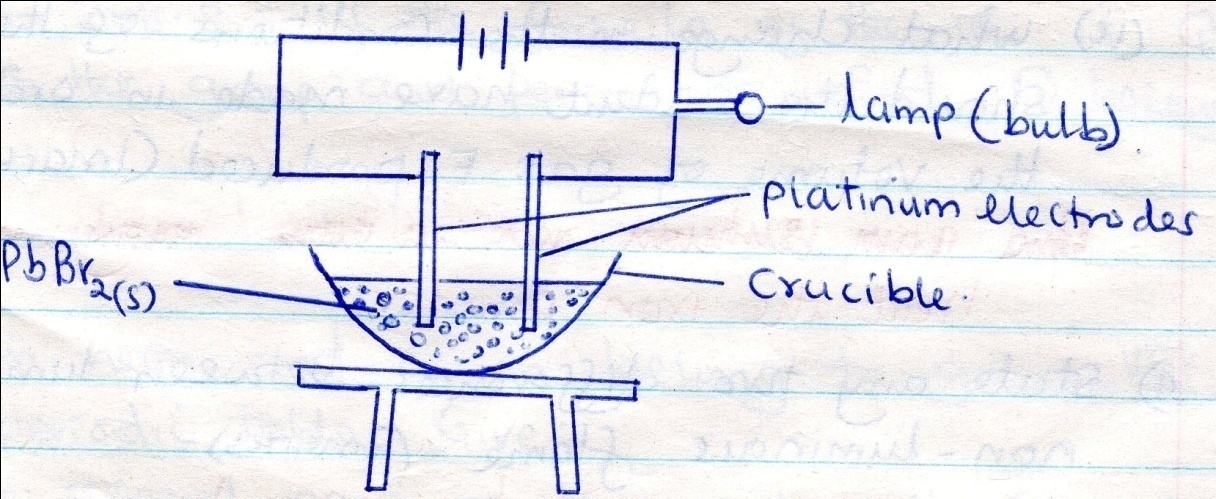 lamp (bulb).
Platinum electrodes
PbBr2(s)
Crucible.